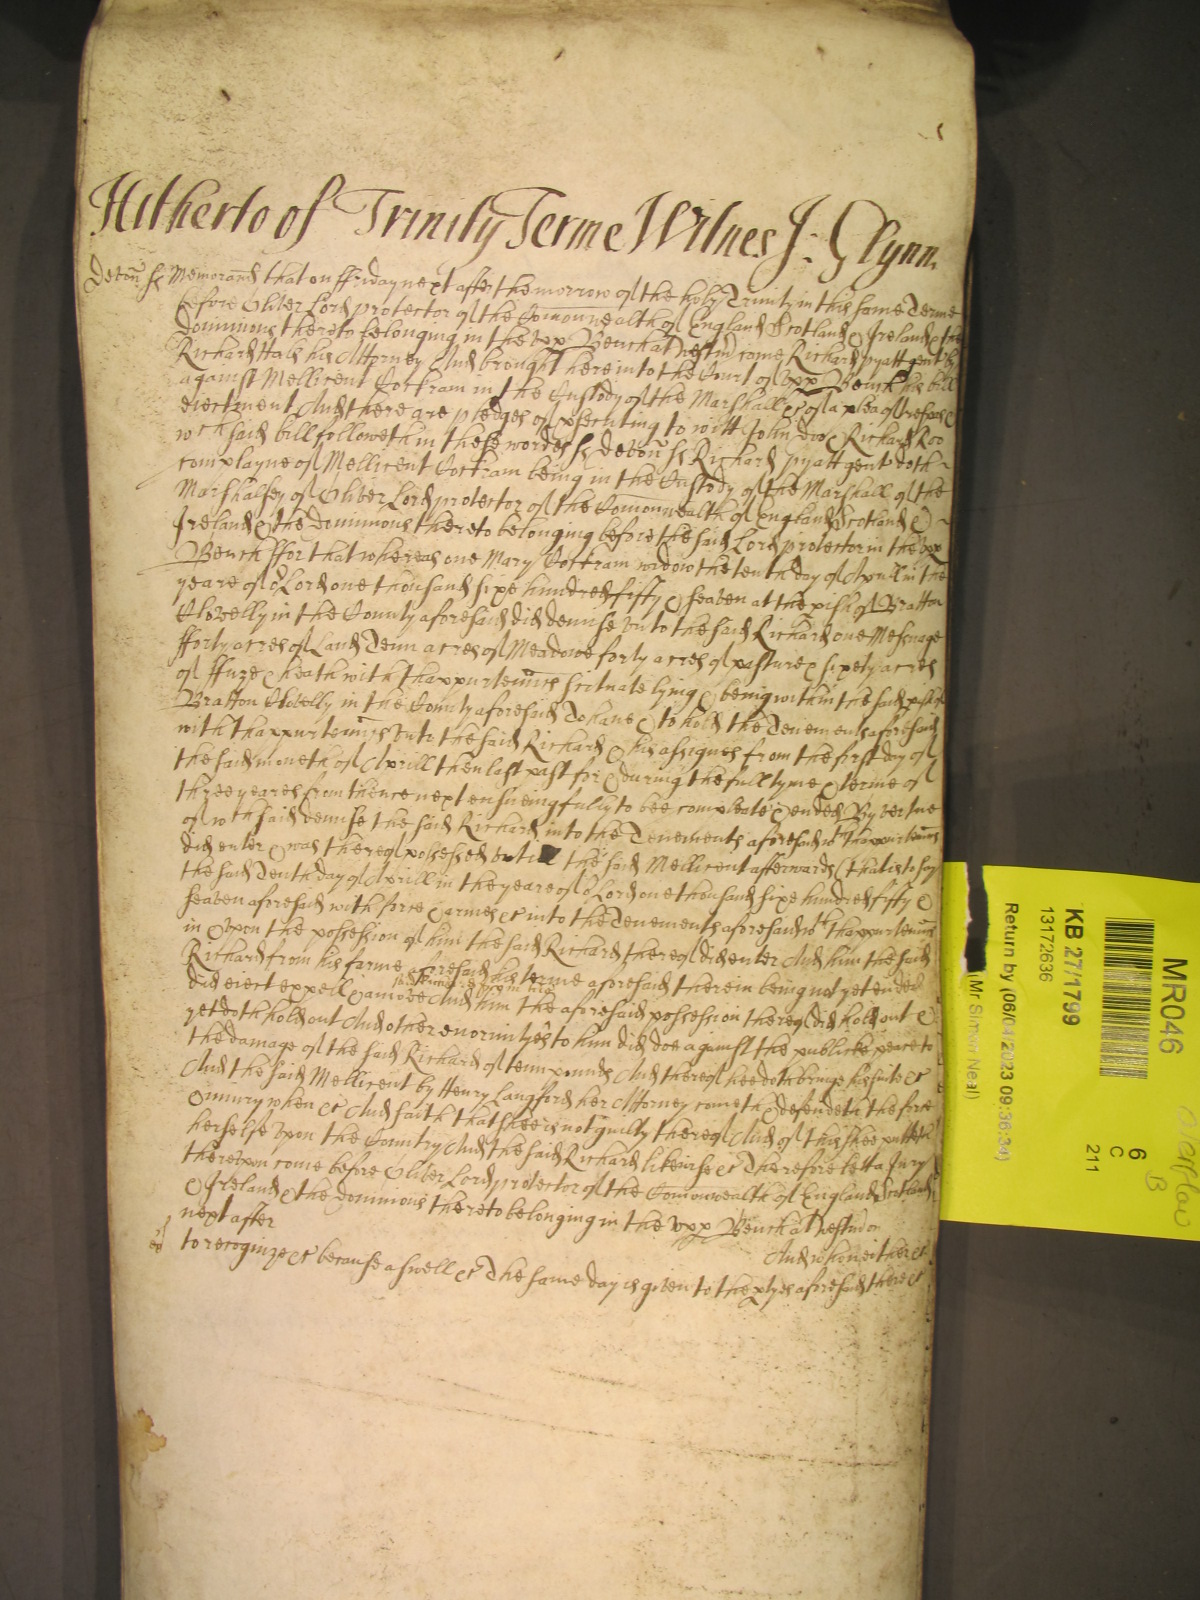 Hitherto of Trinity Terme Witnes J: Glynn
Devoñ ss Memorand that on ffriday next after the morrow of the holy Trinity in this same Terme
before Oliver Lord protector of the Comonwealth of England Scotland & Ireland & the
dominions thereto belonging in the upp Bench at Westm come Richard pyatt gent by
Richard Hals his Attorney And brought here into the Court of upp Bench his bill
against Mellicent Cottram in the Custody of the Marshall &c of a plea of trespas &
eiectment And there are pledges of psecuting to witt John doo & Richard Roo
wch said bill followeth in these wordes ss devoñ ss Richard pyatt gent doth
complayne of Mellicent Cottram being in the Custody of the Marshall of the
Marshalsey of Oliver Lord protector of the Comonwealth of England Scotland &
Ireland & the dominions thereto belonging before the said Lord protector in the upp
Bench ffor that whereas one Mary Cottram widow the tenth day of Aprill in the
yeare of oLord one thousand sixe hundred fiffty & seaven at the pish of Bratton
Clovelly in the County aforesaid did demise unto the said Richard one Messuage
fforty acres of Land Tenn acres of Meadowe forty acres of pasture & sixety acres
of ffurze & heath with thappurtennces scituate lying & being within the said pish of
Bratton Clovelly in the County aforesaid To have & to hold the Tenements aforesaid
with thappurtennces unto the said Richard & his assignes from the first day of
the said moneth of Aprill then last past for & during the full tyme & terme of
three yeares from thence next ensueing fully to bee compleate & ended By vertue
of wch said demise the said Richard into the Tenements aforesaid wth thappurtennces
did enter & was thereof possessed untill the said Mellicent afterwards (that is to say
the said Tenth day of Aprill in the yeare of oLord one thousand sixe hundred fiffty &
seaven aforesaid with force & armes &c into the Tenements aforesaid wth thappurtennces
in & upon the possession of him the said Richard thereof did enter And him the said
Richard from his farme aforesaid his terme aforesaid therein being not yet ended
did eiect expell & amove And him the aforesaid possession thereof did hold out &
yet doth hold out And other enormityes to him did doe against the publicke peace to
the damage of the said Richard of tenn pounds And thereof hee doth bringe his suite &c
And the said Mellicent by Henry Langford her Attorney cometh & defendeth the force
& iniury when &c And saith that shee is not guilty thereof And of this shee putteth
herselfe upon the Country And the said Richard likewise &c Therefore lett a Jury
thereupon come before Oliver Lord protector of the Comonwealth of England Scotland
& Ireland & the dominions thereto belonging in the upp Bench at Westm on
next after And who neither &c
to recognize &c because aswell &c The same day is given to the ptyes aforesaid there &c
MR046
KB 27/1799
13172636
Return by (06/04/2023 09:36:34)
(Mr Simon Neal)
6
C
211
B